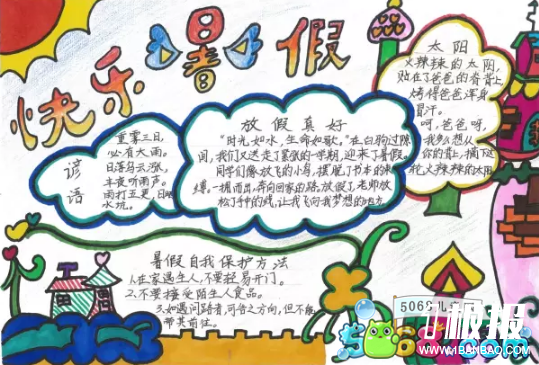 快乐暑假
谚语
重雾三日,
必有大雨。
日落乌云涨,
半夜听雨声。
雨打五更,日晒
水坑。
放假真好
"时光如水,生命如歌。"在白驹过隙
间,我们又送走了紧张的学期,迎来了暑假。
同学们像放飞的小鸟,摆脱了书本的束
缚,一拥而出,奔向回家的路,放假了,老师放
松了手中的线,让我飞向我梦想的地方。
太阳
火辣辣的太阳,
贴在了爸爸的脊背上,
烤得爸爸浑身
冒汗。
呵,爸爸呀,
我多么想从
你的背上,摘下这
轮火辣辣的太阳
暑假自我保护方法
1.在家遇生人,不要轻易开门。
2.不要接受陌生人食品。
3.如遇问路者,可告之方向,但不能
带其前往。
5068儿童
5068.com
板报
WWW.1BANBAO.COM